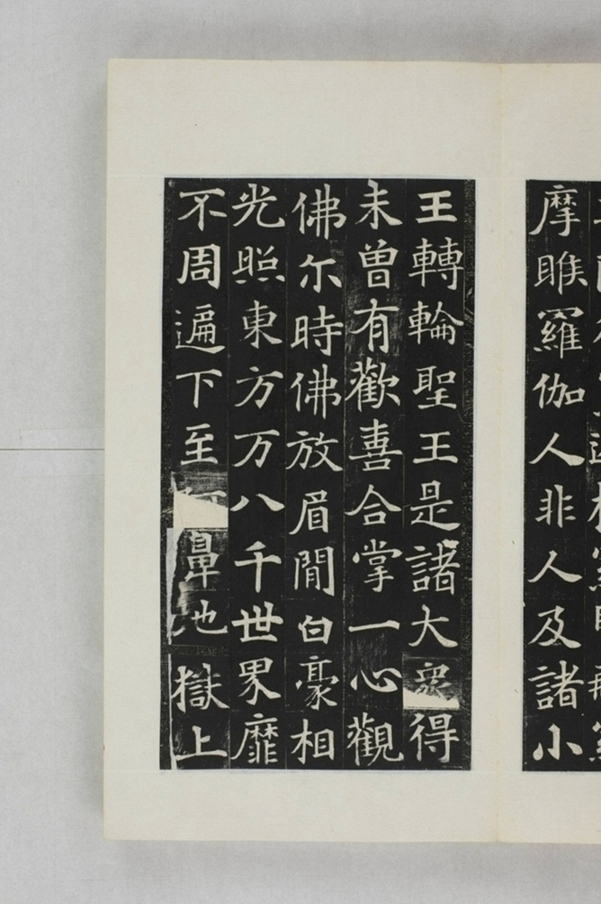 摩睺羅伽人非人及諸小
王轉輪聖王是諸大眾得
未曾有歡喜合掌一心觀
佛尓時佛放眉閒白豪相
光照東方万八千世界靡
不周遍下至鼻地獄上